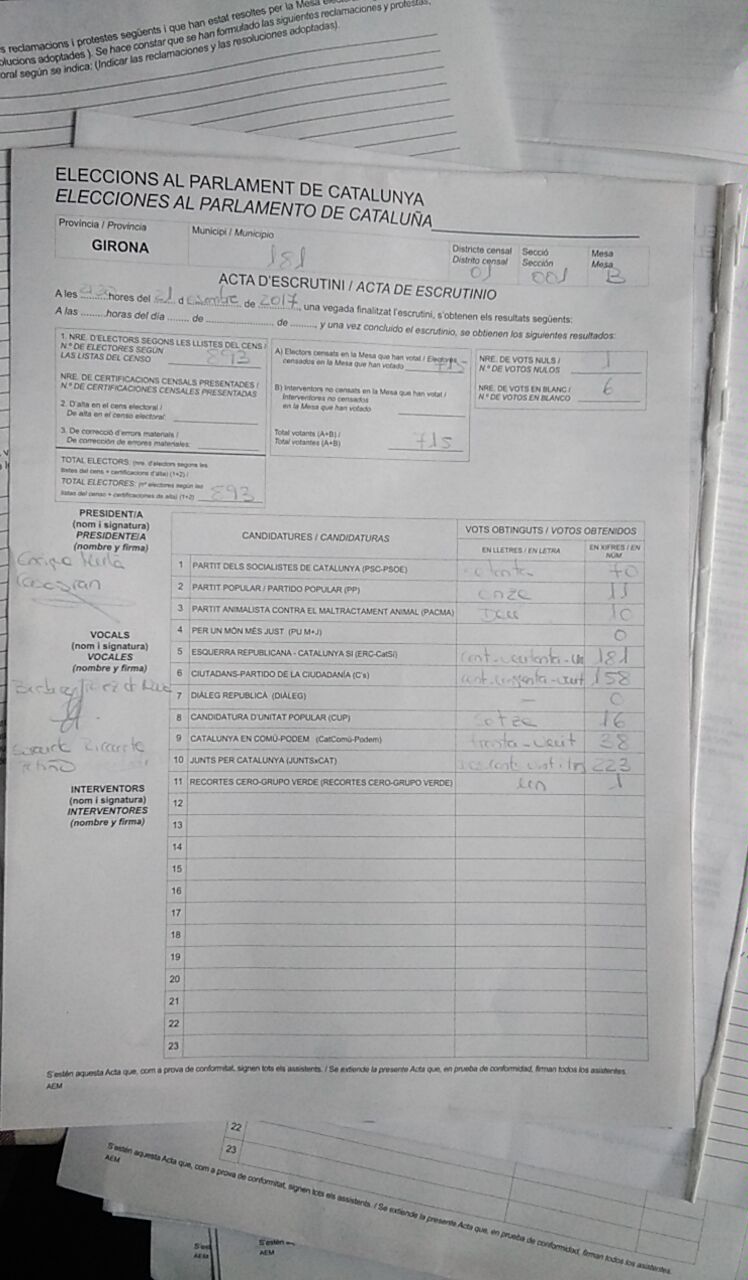 s reclamacions i protestes següents i que han estat resoltes per la Mesa
olucions adoptades ). Se hace constar que se han formulado las siguientes reclamaciones y protestas,
oral según se indica: (Indicar las reclamaciones y las resoluciones adoptadas).
ELECCIONS AL PARLAMENT DE CATALUNYA
ELECCIONES AL PARLAMENTO DE CATALUÑA
Província / Provincia
GIRONA
Municipi / Municipio
181
Districte censal
Distrito censal
01
Secció
Sección
001
Mesa
Mesa
B
ACTA D'ESCRUTINI / ACTA DE ESCRUTINIO
A les ........hores del 21 d de 2017, una vegada finalitzat l'escrutini, s'obtenen els resultats següents:
A las .........horas del día ....... de ........................ de ........, y una vez concluido el escrutinio, se obtienen los siguientes resultados:
1. NRE. D'ELECTORS SEGONS LES LLISTES DEL CENS /
N.º DE ELECTORES SEGÚN
LAS LISTAS DEL CENSO 893
NRE. DE CERTIFICACIONS CENSALS PRESENTADES /
N.º DE CERTIFICACIONES CENSALES PRESENTADAS
2. D'alta en el cens electoral /
De alta en el censo electoral:
3. De correcció d'errors materials /
De corrección de errores materiales:
TOTAL ELECTORS: (nre. d'electors segons les
llistes del cens + certificacions d'alta) (1+2) /
TOTAL ELECTORES: (nº electores según las
listas del censo + certificaciones de alta) (1+2) 893
A) Electors censats en la Mesa que han votat / Electores
censados en la Mesa que han votado 715
B) Interventors no censats en la Mesa que han votat /
Interventores no censados
en la Mesa que han votado
Total votants (A+B) /
Total votantes (A+B) 715
NRE. DE VOTS NULS /
N.º DE VOTOS NULOS 1
NRE. DE VOTS EN BLANC /
N.º DE VOTOS EN BLANCO 6
PRESIDENT/A
(nom i signatura)
PRESIDENTE/A
(nombre y firma)
VOCALS
(nom i signatura)
VOCALES
(nombre y firma)
INTERVENTORS
(nom i signatura)
INTERVENTORES
(nombre y firma)
CANDIDATURES / CANDIDATURAS
VOTS OBTINGUTS / VOTOS OBTENIDOS
EN LLETRES / EN LETRA
EN XIFRES / EN NÚM
1 PARTIT DELS SOCIALISTES DE CATALUNYA (PSC-PSOE) 70
2 PARTIT POPULAR / PARTIDO POPULAR (PP) onze 11
3 PARTIT ANIMALISTA CONTRA EL MALTRACTAMENT ANIMAL (PACMA) Deu 10
4 PER UN MÓN MÉS JUST (PU M+J) 0
5 ESQUERRA REPUBLICANA - CATALUNYA SÍ (ERC-CatSí) 181
6 CIUTADANS-PARTIDO DE LA CIUDADANÍA (C's) 158
7 DIÀLEG REPUBLICÀ (DIÀLEG) — 0
8 CANDIDATURA D'UNITAT POPULAR (CUP) setze 16
9 CATALUNYA EN COMÚ-PODEM (CatComú-Podem) trenta-vuit 38
10 JUNTS PER CATALUNYA (JUNTSxCAT) 223
11 RECORTES CERO-GRUPO VERDE (RECORTES CERO-GRUPO VERDE) un 1
12
13
14
15
16
17
18
19
20
21
22
23
S'estén aquesta Acta que, com a prova de conformitat, signen tots els assistents. / Se extiende la presente Acta que, en prueba de conformidad, firman todos los asistentes.
AEM
22
23
S'estén aquesta Acta que, com a prova de conformitat, signen tots els assistents. / Se extiende la presente Acta que, en prueba de conformidad, firman todos los asistentes.
AEM
S'est
AEM
S'estén
AEM